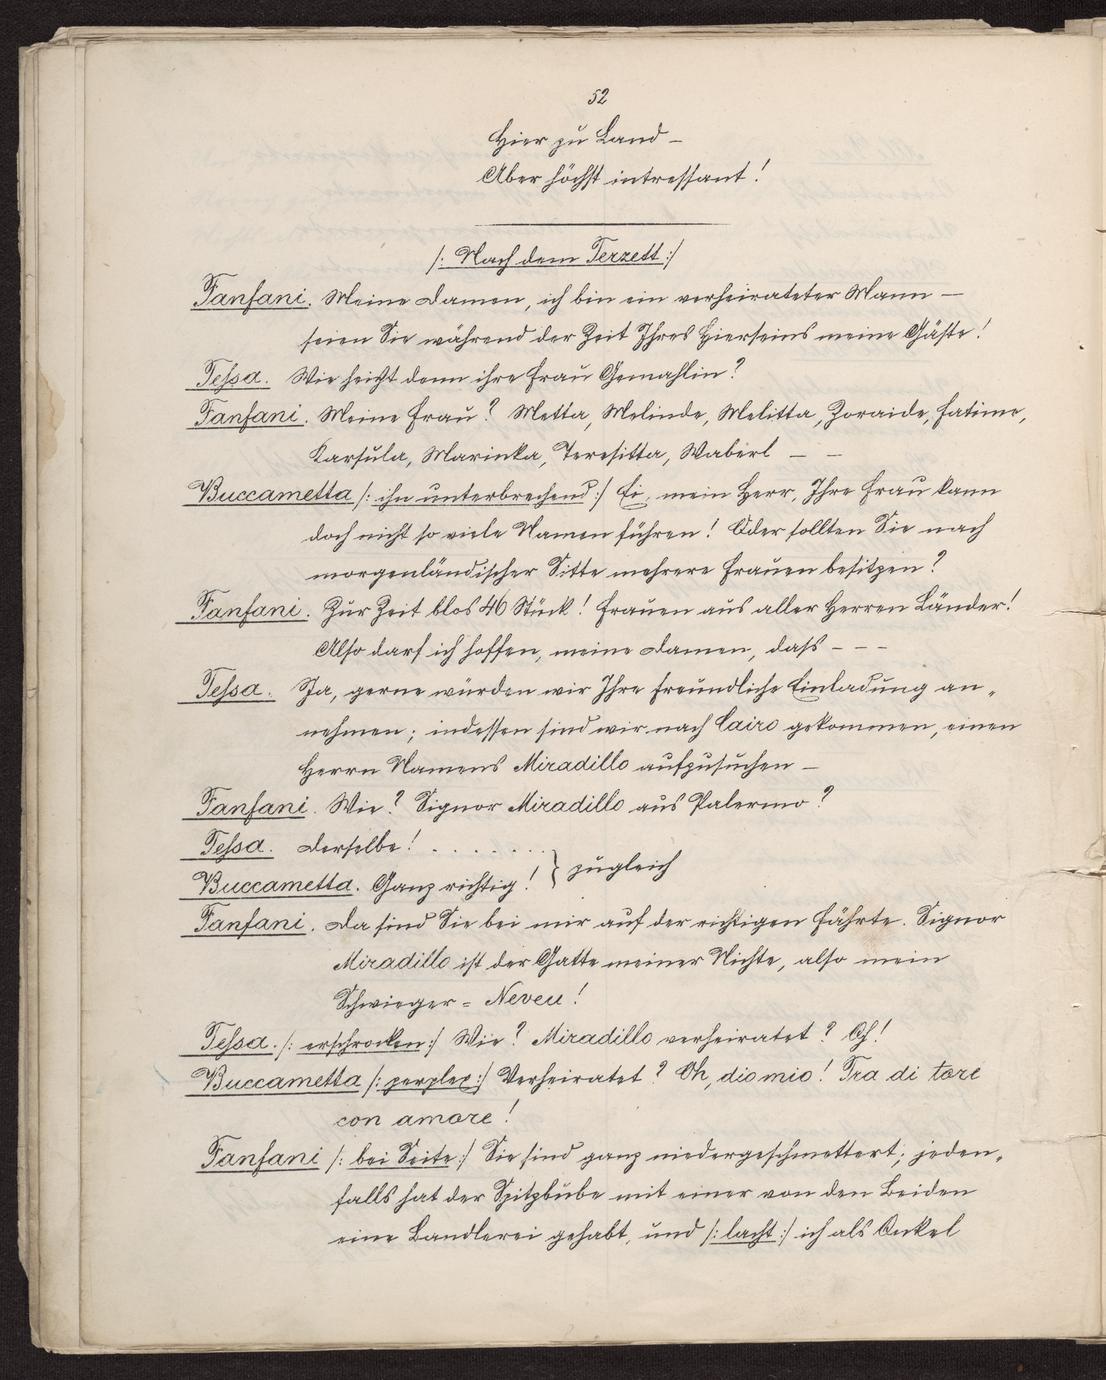 52
Hier zu Land –
Aber höchst intressant!
/: Nach dem Terzett :/
Fanfani. Meine Damen, ich bin ein verheirateter Mann —
seien Sie während der Zeit Ihres Hierseins meine Gäste!
Tessa. Wie heißt denn ihre Frau Gemahlin?
Fanfani. Meine Frau? Metta, Melinde, Melitta, Zoraide, Fatime,
Karsula, Marinka, Teresitta, Waberl — —
Buccametta /: ihn unterbrechend :/ Ei, mein Herr, Ihre Frau kann
doch nicht so viele Namen führen! Oder sollten Sie nach
morgenländischer Sitte mehrere Frauen besitzen?
Fanfani. Zur Zeit blos 46 Stück! Frauen aus aller Herren Länder!
Also darf ich hoffen, meine Damen, dass – – –
Tessa. Ja, gerne würden wir Ihre freundliche Einladung an-
nehmen; indessen sind wir nach Cairo gekommen, einen
Herrn Namens Miradillo aufzusuchen –
Fanfani. Wie? Signor Miradillo aus Palermo?
Tessa. Derselbe! . . . . . . . } zugleich
Buccametta. Ganz richtig!
Fanfani. Da sind Sie bei mir auf der richtigen Fährte. Signor
Miradillo ist der Gatte meiner Nichte, also mein
Schwieger = Neveu!
Tessa. /: erschrocken :/ Wie? Miradillo verheiratet? Oh!
Buccametta /: perplex :/ Verheiratet? Oh, dio mio! Tra di tore
con amore!
Fanfani /: bei Seite :/ Sie sind ganz niedergeschmettert; jeden-
falls hat der Spitzbube mit einer von den Beiden
eine Bandlerei gehabt, und /: lacht :/ ich als Onkel